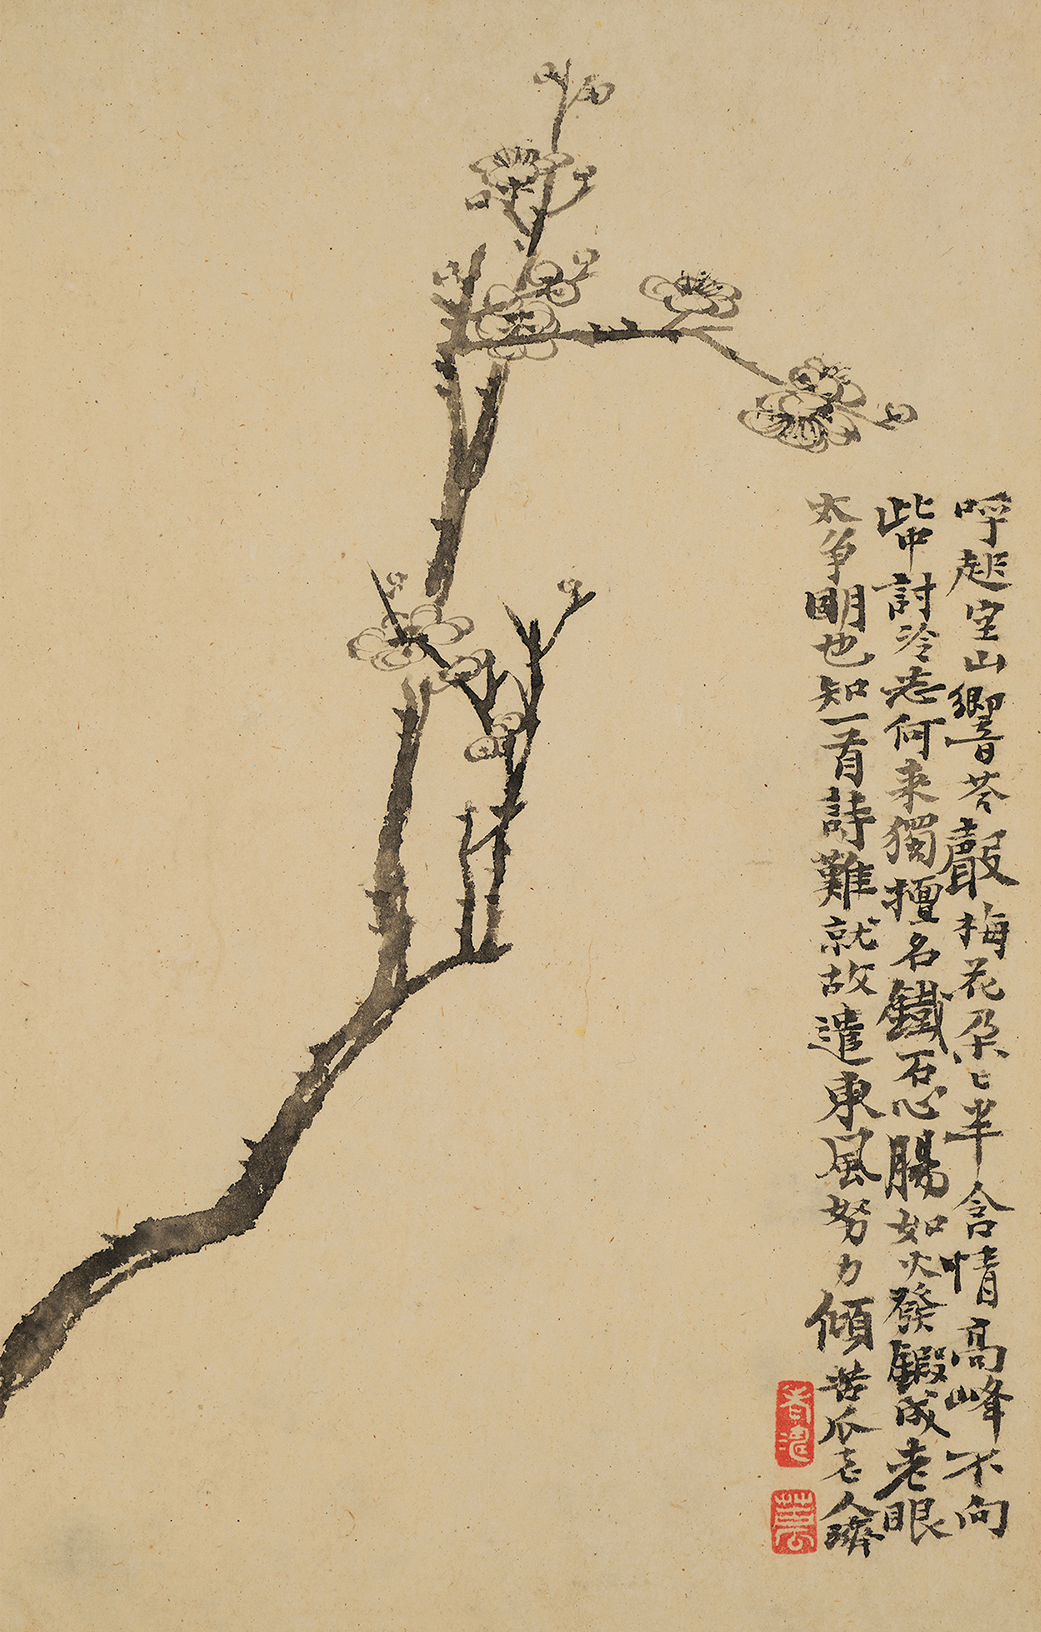 呼起空山響荅聲梅花朶〻半含情高峰不向
此中討冷蕊何来獨擅名鐵石心腸如火發鍛成老眼
太爭明也知一首詩難就故遣東風努力傾苦瓜老人濟